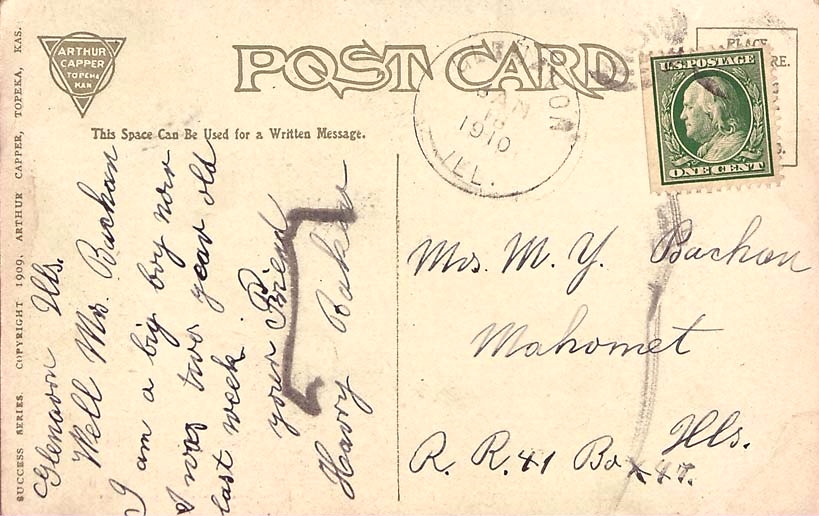 SUCCESS SERIES. COPYRIGHT 1909, ARTHUR CAPPER, TOPEKA, KAS.
ARTHUR
CAPPER
TOPEKA
KAN
POST CARD
This Space Can Be Used for a Written Message.
Glenavon Ills.
Well Mrs. Buchan
I am a big boy now
I was two year old
last week.
your Friend
Harry Baker
AM
1910
ILL.
PLACE
RE.
U.S. POSTAGE
ONE CENT
Mrs. M. Y. Buchan
Mahomet
Ills.
R. R. 41 Box 47.